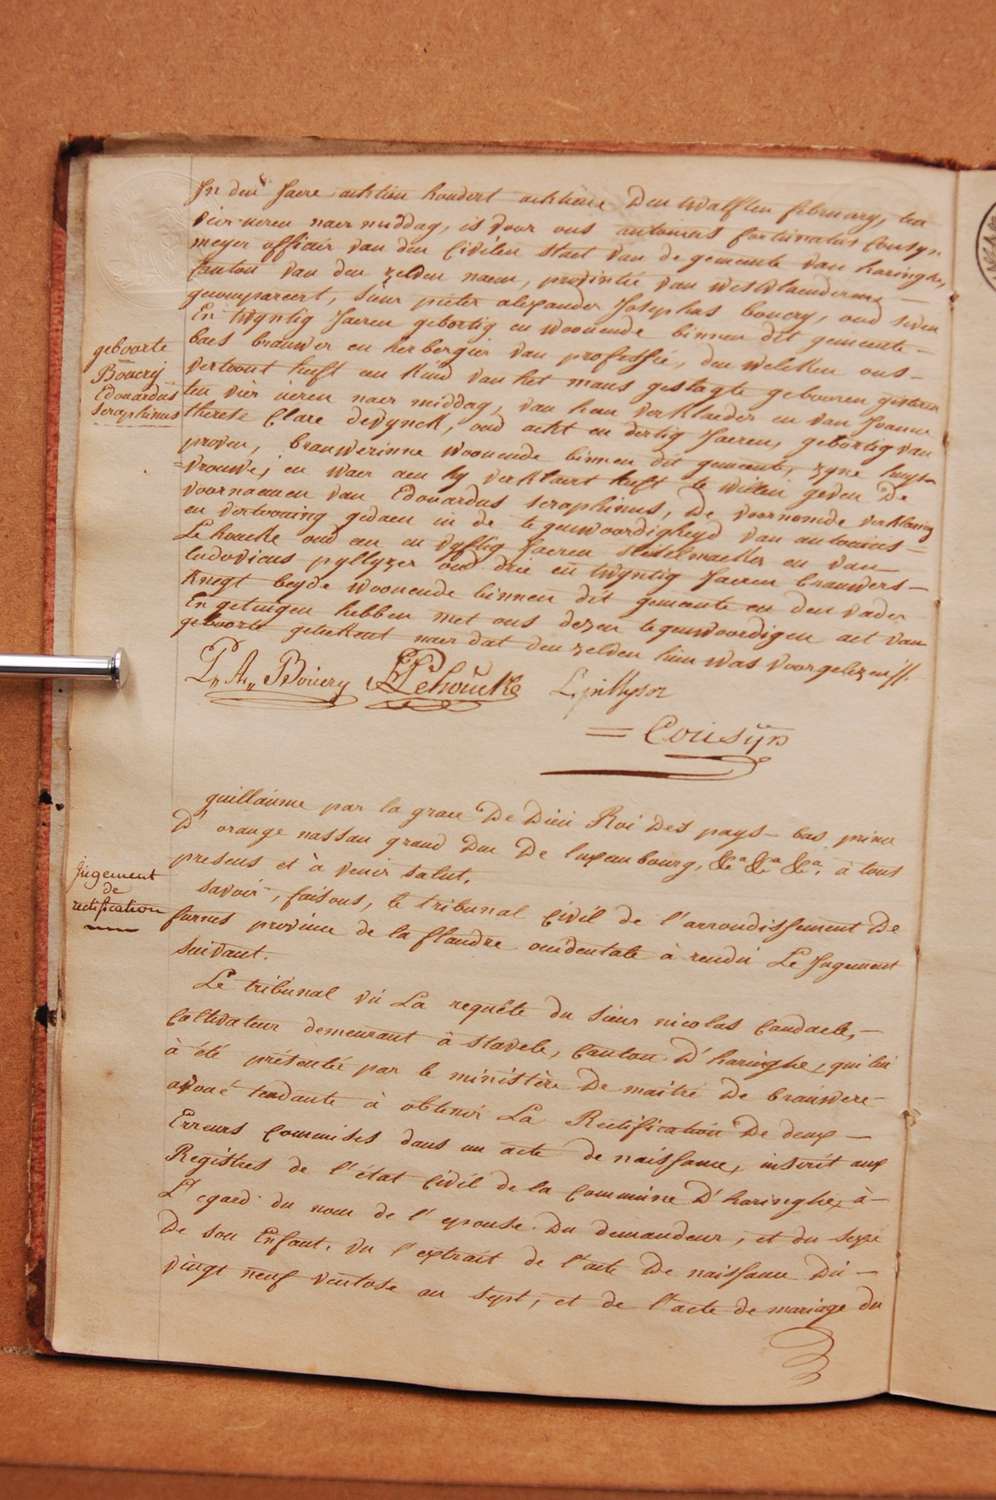 In den Jaere achtien hondert achtiene den twalfsten february, ten
vier ueren naer middag, is voor ons antonius fortunatus Cousyn
meyer officier van den Civilen staet van de gemeente van haringhe,
Canton van den zelden naem, provintie van westvlaenderen,
gecompareert, Sieur pieter alexander Josephus bouery, oud seven
En twyntig Jaeren gebortig en woonende binnen dit gemeente –
baes brauwer en herbergier van professie, den welcken ons –
vertoont heeft een kind van het mans geslagte gebooren gisteren
ten vier ueren naer middag, van hem verklaeder en van Joanna
therese Clare devynck, oud acht en dertig Jaeren, gebortig van
proven, brauwerinne woonende binnen dit gemeente, zyne huys-
=vrouwe; en waer aen hy verklaert heeft te willen geven de
voornaemen van Edouardus seraphinus, de voornomde verklaring
en vertooning gedaen in de tegenwoordigheyd van antonius –
Lehoucke oud een en vyftig Jaeren stedelmaeker en van
ludovicus pyllyzer oud drie en twyntig Jaeren brauwers –
knegt beyde woonende binnen dit gemeente en den vader
En getuigen hebben met ons dezen tegenwoordigen act van
geboorte geteekent naer dat den zelden hun was voorgelezen //.
geboorte
Bouery
Edouardus
seraphinus
P,, A,, Bouery Lehoucke L pillyser
= Cousijn
guillaume par la grace De Dieu Roi Des pays – bas prince
D'orange nassau grand Duc De luxembourg, &a &a &a, à tous
presens et à venir salut.
savoir, faisons, le tribunal civil de l'arrondissement De
furnes province de la flandre occidentale à rendu Le Jugement
suivant.
jugement
de
rectification
Le tribunal vu La requête du Sieur nicolas Candaele, –
Cultivateur demeurant à stavele, Canton D'haringhe, qui lui
à été présentée par le ministère De maitre De brauwere –
avoué tendante à obtenir La Rectification De deux –
Erreurs commises dans un acte de naissance, inscrit aux
Registres de l'état civil de la commune D'haringhe, à –
L'egard du nom de l'epouse Du demandeur, et du sexe
De son Enfant. vu l'extrait de l'acte De naissance Du –
vingt neuf ventose an sept, et de l'acte de mariage du